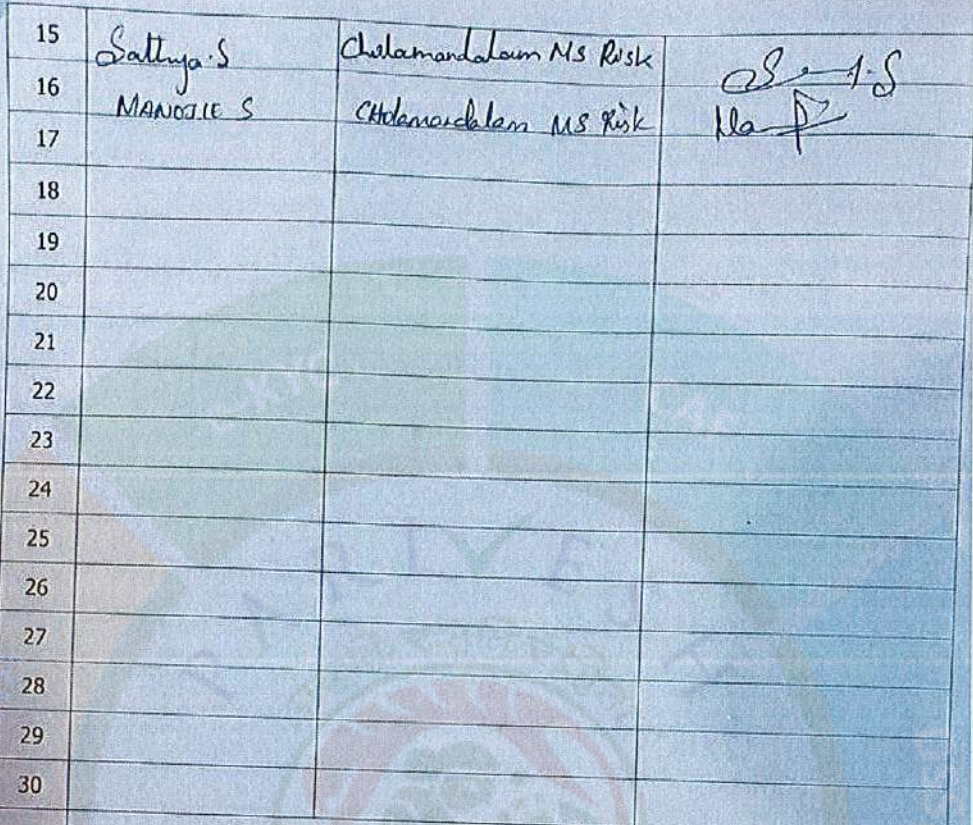 15 Sathya.S Cholamandalam MS Risk
16 MANOJIE S CHolamandalam MS Risk
17
18
19
20
21
22
23
24
25
26
27
28
29
30